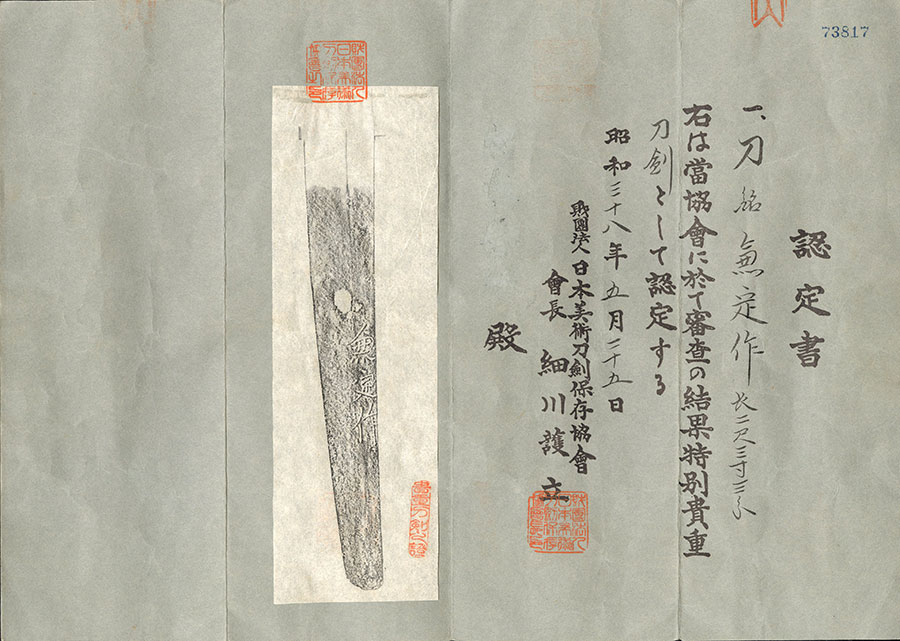 73817
認定書
一、刀 銘 兼定作 長二尺三寸三分
右は當協會に於て審査の結果特別貴重
刀劍として認定する
昭和三十八年五月二十五日
財團法人日本美術刀劍保存協會
會長 細川護立
殿
兼定作